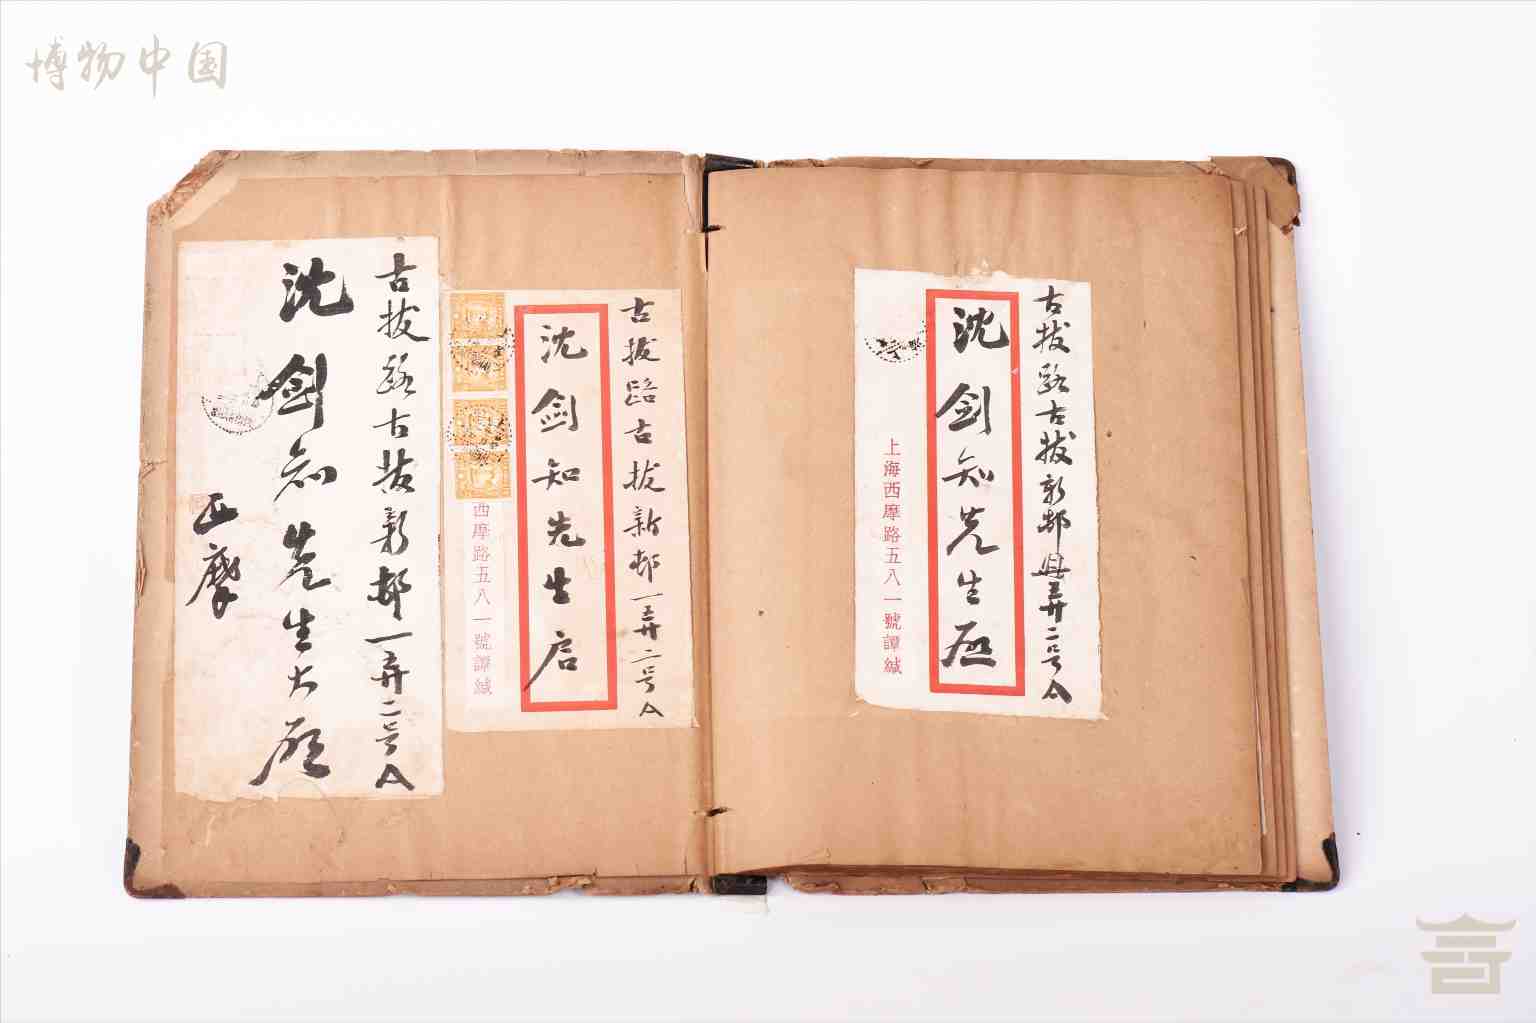 博物中国
古拔路古拔新邨一弄二号A
沈剑知先生大启
西摩
古拔路古拔新邨一弄二号A
沈剑知先生启
西摩路五八一號譚緘
古拔路古拔新邨弄二号A
沈剑知先生启
上海西摩路五八一號譚緘